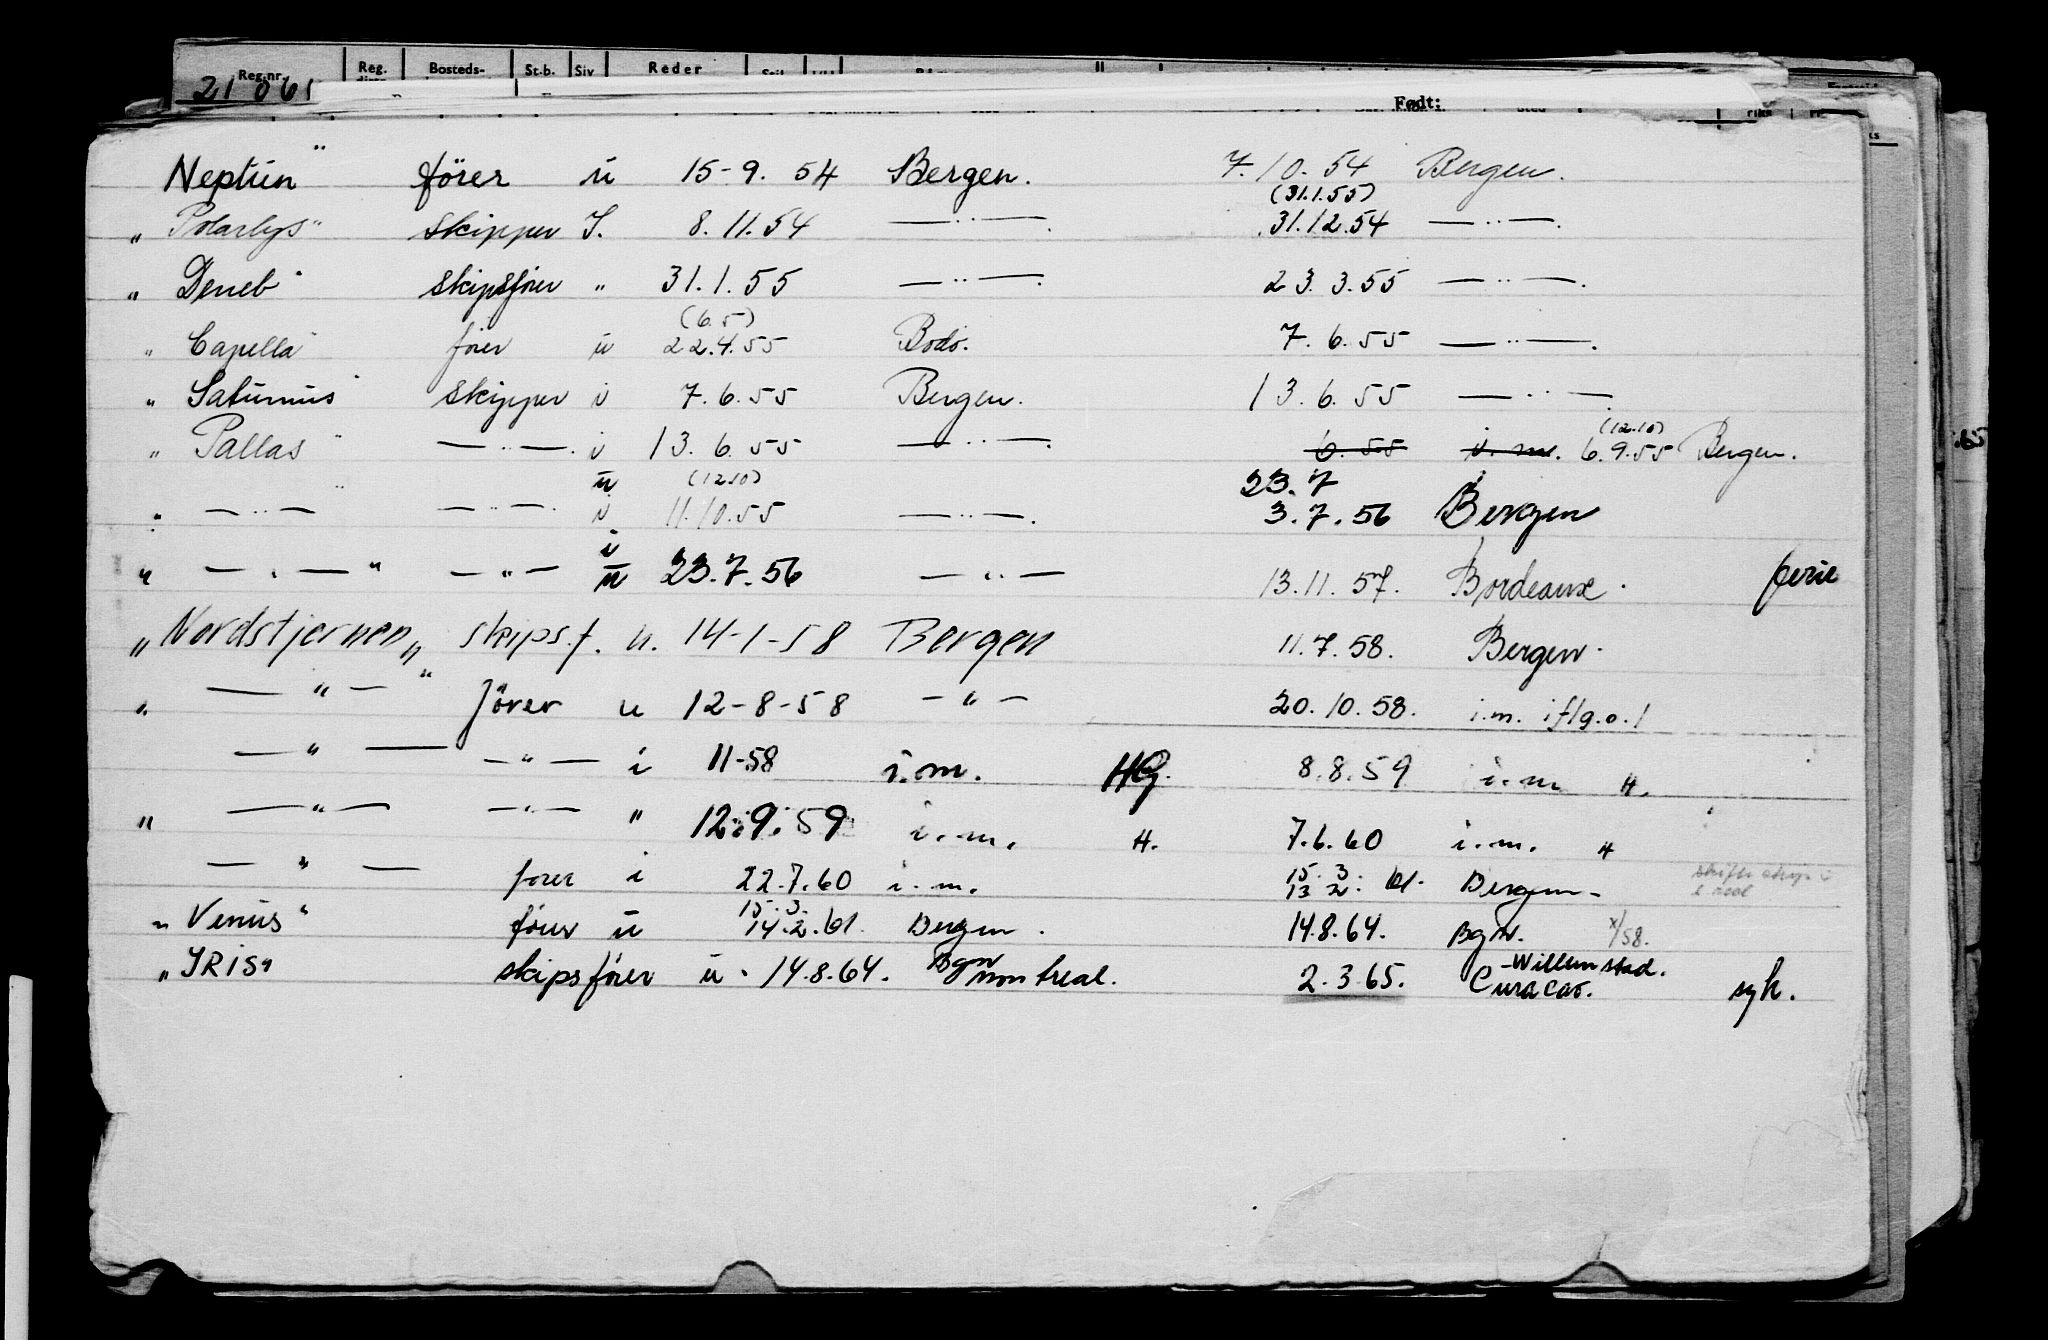 Reg.nr. Reg. Bosteds- St.b. Siv Reder
21061
Født:
Neptun" förer u 15-9.54 Bergen. 7.10.54 Bergen.
(31.1.55)
" Polarlys" skipper I. 8.11.54 — " — 31.12.54 — " —
" Deneb" skipsförer " 31.1.55 — " — 23.3.55 — " —
(6.5)
" Capella" förer u 22.4.55 Bodö. 7.6.55 — " —
" Saturnus" skipper i 7.6.55 Bergen. 13.6.55 — " —
(12.10)
" Pallas" — " — i 13.6.55 — " — 6.55 i.m. 6.9.55 Bergen.
u (12.10) 23.7
" — " — " — " — i 11.10.55 — " — 3.7.56 Bergen
i
" — " — " — " — u 23.7.56 — " — 13.11.57. Bordeaux. ferie
" Nordstjernen" skips.f. u. 14-1-58 Bergen 11.7.58. Bergen.
" — " — " förer u 12-8-58 — " — 20.10.58. i.m. iflg.o.l
— " — — " — i 11-58 i.m. HG. 8.8.59 i.m H.
" — " — — " — " 12.9.59 i.m. H. 7.6.60 i.m. H
— " — förer i 22.7.60 i.m. 15.3. 13 2. 61. Bergen-
" Venus" förer u 15.3. 14.2.61. Bergen. 14.8.64. Bgn. x/58.
" IRIS" skipsförer u. 14.8.64. Bgn montreal. 2.3.65. -Willemstad. Curacao. syk.